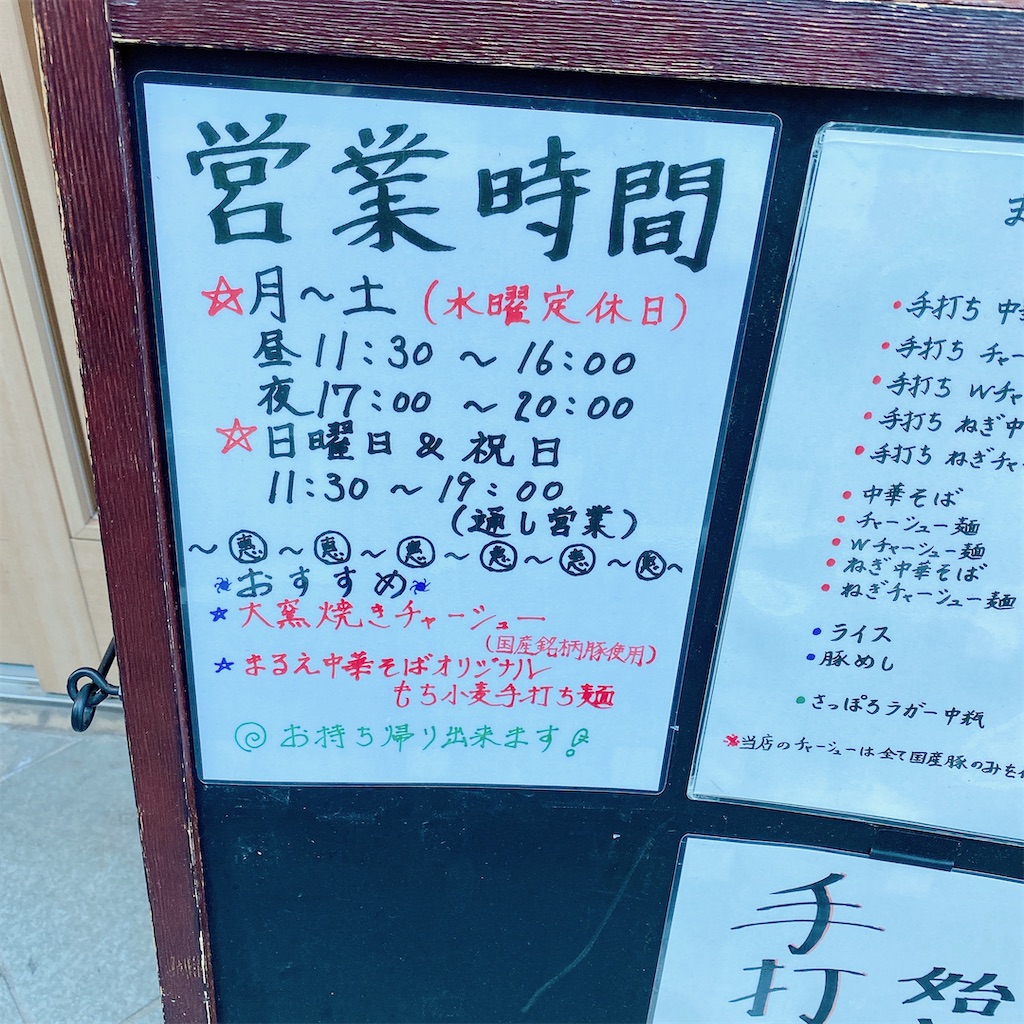 営業時間
☆月～土(水曜定休日)
昼11:30～16:00
夜17:00～20:00
☆日曜日&祝日
11:30～19:00
(通し営業)
～惠～惠～惠～惠～惠～惠～
おすすめ
★大窯焼きチャーシュー
(国産銘柄豚使用)
★まるえ中華そばオリジナル
もち小麦手打ち麺
お持ち帰り出来ます!
・手打ち 中
・手打ち チャー
・手打ち Wチャ
・手打ち ねぎ中
・手打ち ねぎチャ
・中華そば
・チャーシュー麺
・Wチャーシュー麺
・ねぎ中華そば
・ねぎチャーシュー麺
・ライス
・豚めし
・さっぽろラガー中瓶
※当店のチャーシューは全て国産豚のみを
手打
始